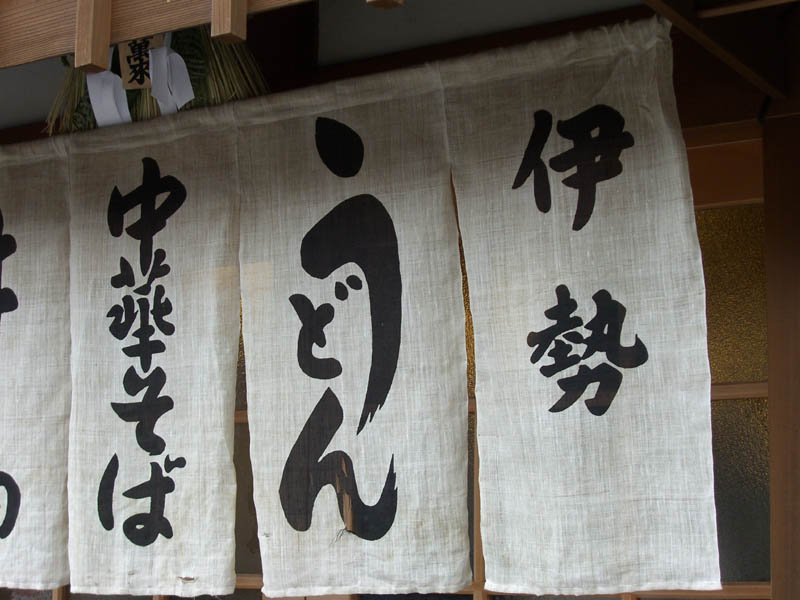 伊勢
うどん
中華そば